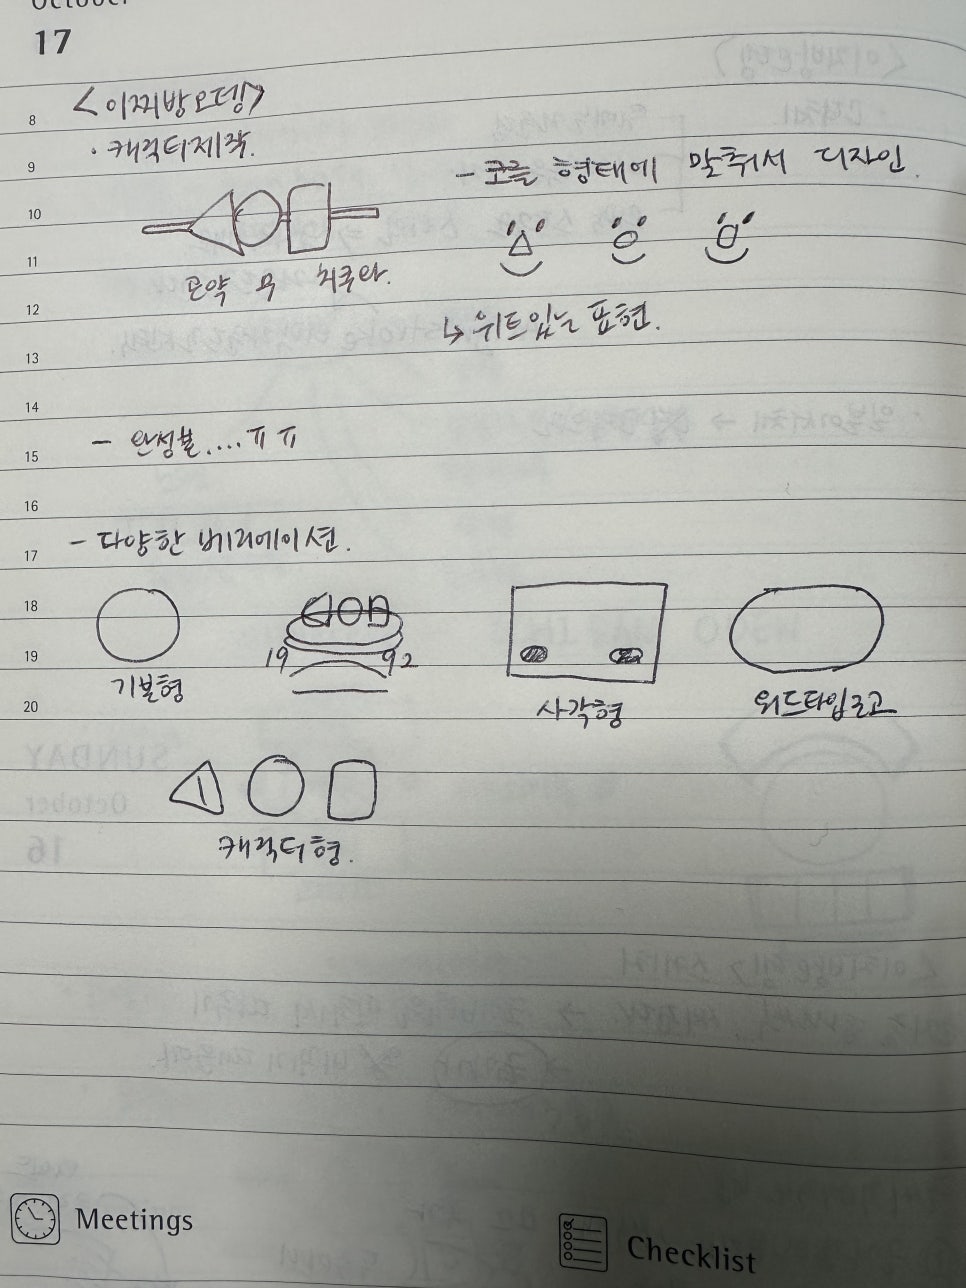 October
17
8
<이찌방오뎅>
9
· 캐릭터제작.
- 코를 형태에 맞춰서 디자인.
10
11
곤약 무 치쿠와.
12
↳ 위트있는 표현.
13
14
15
- 완성본....ㅠㅠ
16
17
- 다양한 베리에이션.
18
19
19 92
20
기본형
사각형
워드타입로고
캐릭터형.
Meetings
Checklist